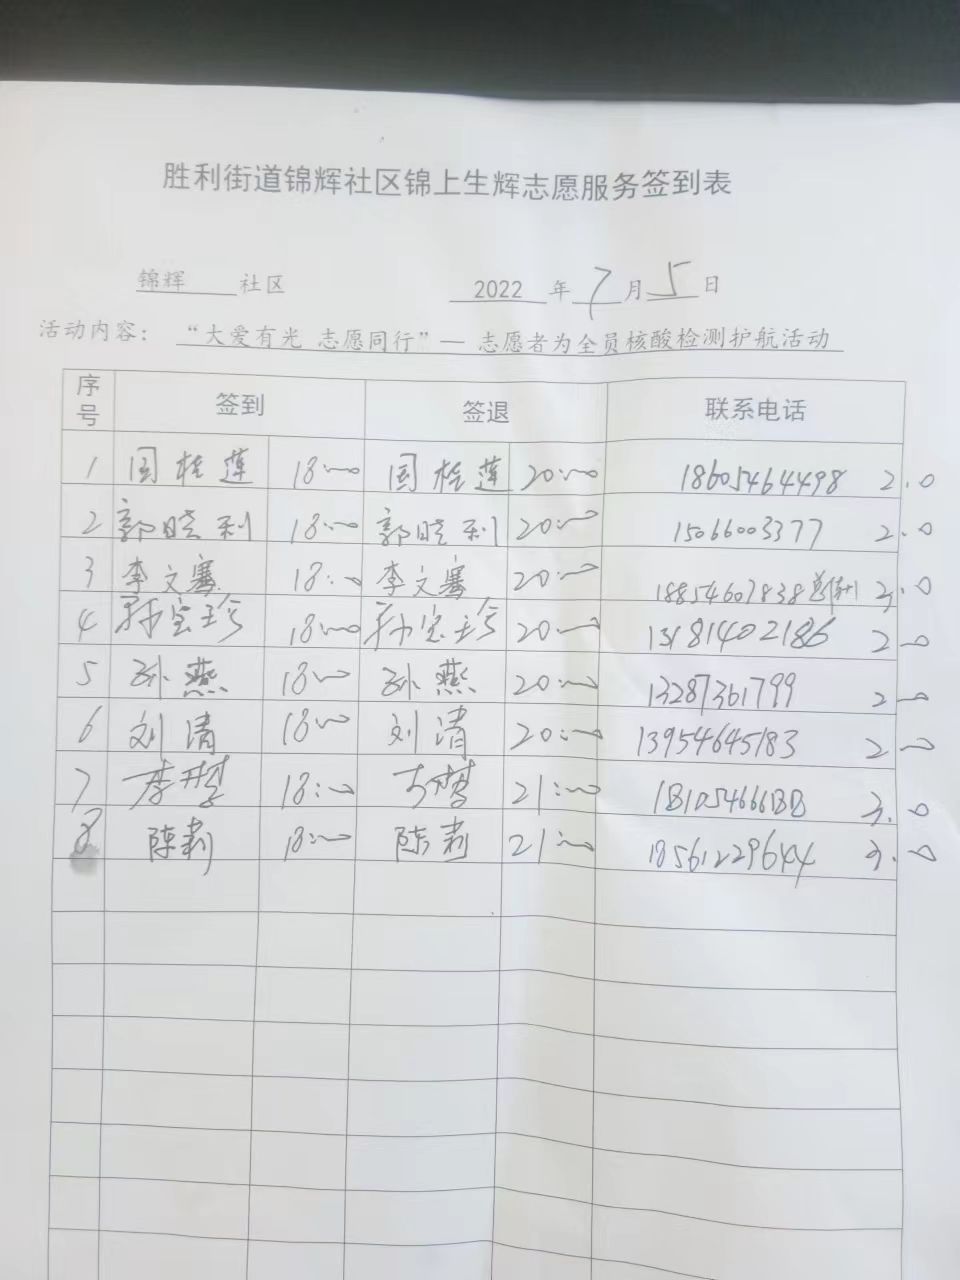 胜利街道锦辉社区锦上生辉志愿服务签到表
锦辉 社区 2022 年 7 月 5 日
活动内容： “大爱有光 志愿同行”— 志愿者为全员核酸检测护航活动
序号 签到 签退 联系电话
1 国桂莲 18:00 国桂莲 20:00 18605464498 2.0
2 郭晓利 18:00 郭晓利 20:00 15066003377 2.0
3 李文骞 18:00 李文骞 20:00 18854607838 2.0
4 孙宝珍 18:00 孙宝珍 20:00 13181402186 2.0
5 孙燕 18:00 孙燕 20:00 13287361799 2.0
6 刘清 18:00 刘清 20:00 13954645183 2.0
7 18:00 21:00 3.0
8 陈莉 18:00 陈莉 21:00 18561229644 3.0